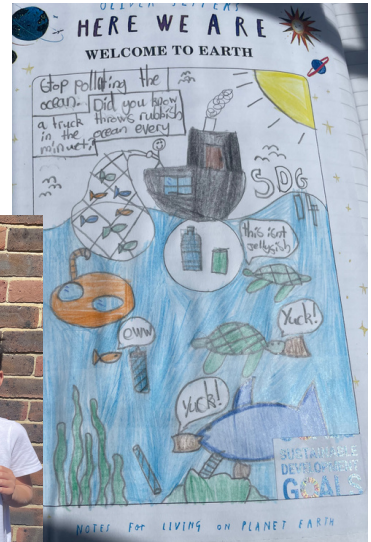 OLIVER JEFFERS
HERE WE ARE
WELCOME TO EARTH
Stop polluting the
ocean. Did you know
a truck throws rubbish
in the ocean every
minuet?
SDG
14
this isnt
jellyfish
Yuck!
eww
Yuck!
SUSTAINABLE
DEVELOPMENT
GOALS
NOTES FOR LIVING ON PLANET EARTH